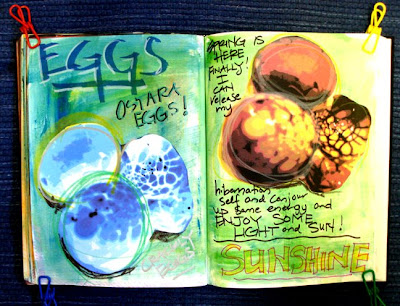 EGGS
OSTARA
EGGS!
SPRING IS
HERE
FINALLY!
I
CAN
release
my
hibernation
self and conjour
up some energy and
ENJOY SOME
LIGHT and SUN!
SUNSHINE